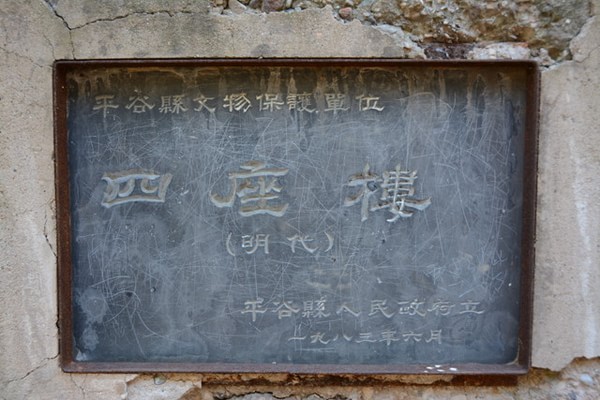 平谷縣文物保護單位
四座樓
(明代)
平谷縣人民政府立
一九八三年六月